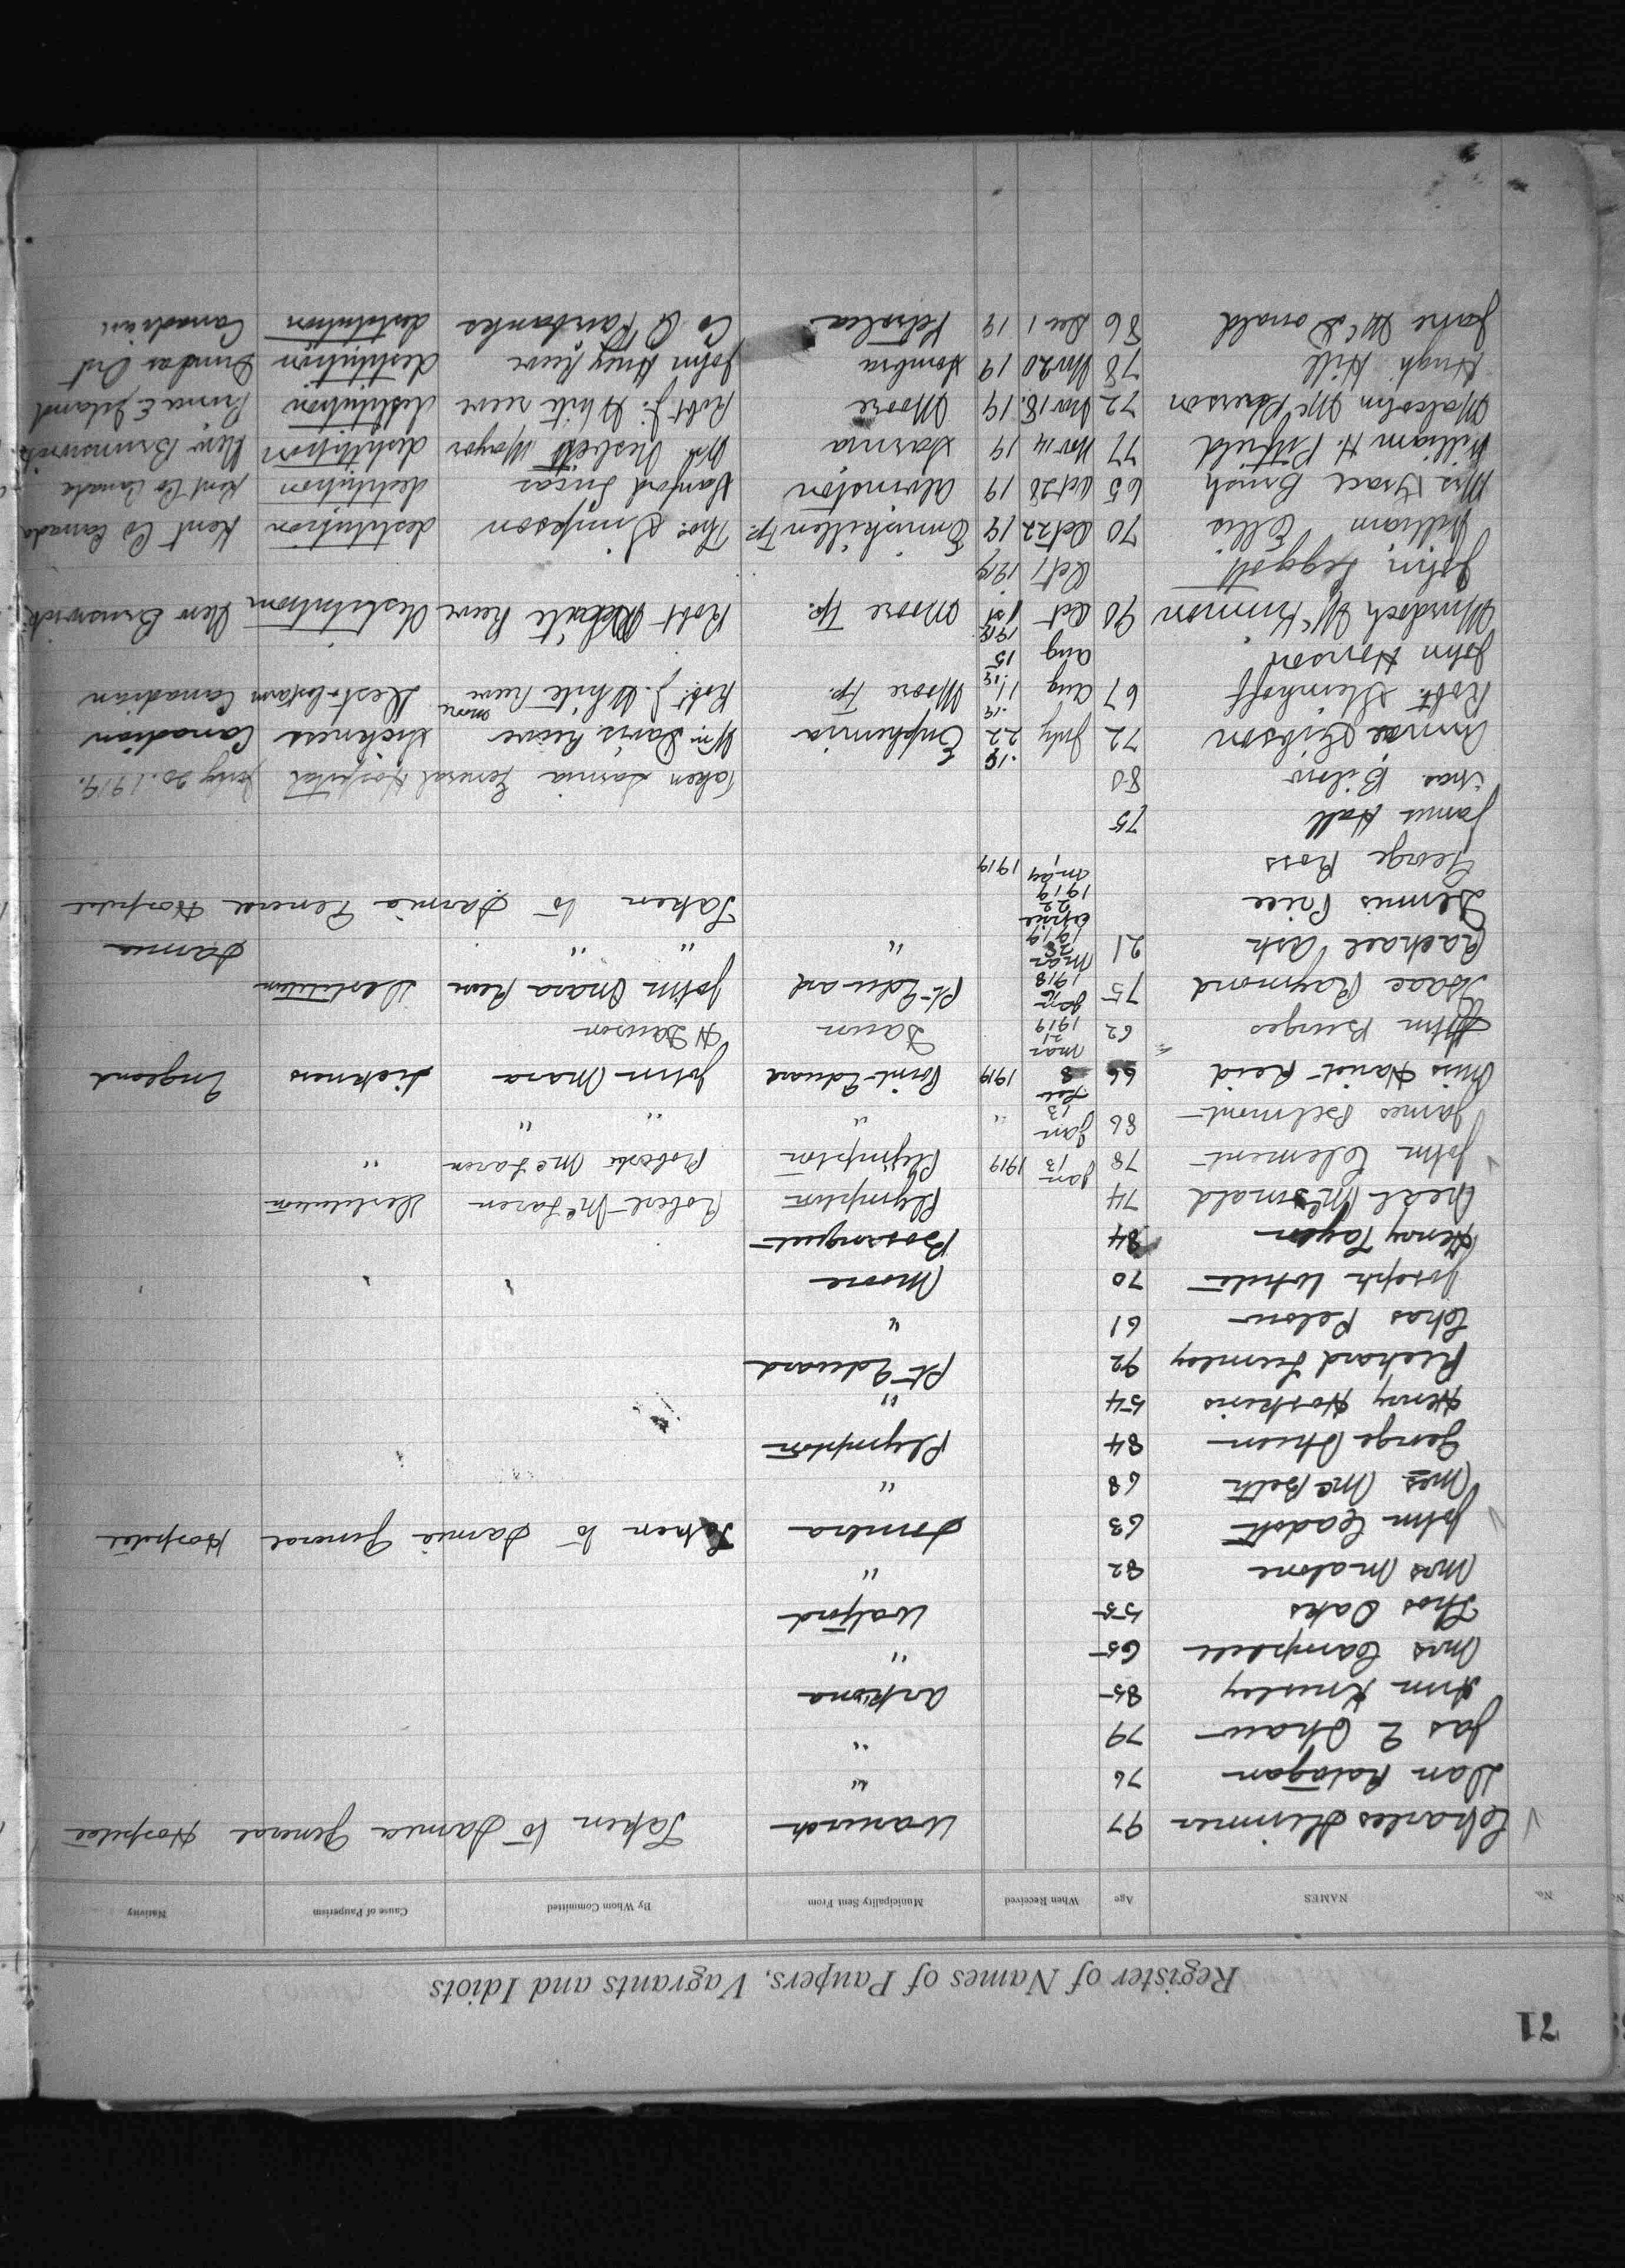 71
Register of Names of Paupers, Vagrants and Idiots
No. NAMES Age When Received Municipality Sent From By Whom Committed Cause of Pauperism Nativity
Charles Skinner 97 Warwick Taken to Sarnia General Hospital
Dan 76 "
Jas 2 Shaw 79 "
Ann Knisley 85 Arkona
Mrs Campbell 65 "
Thos Oaks 55 Watford
Mrs Malone 82 "
John Cadott 63 Sombra Taken to Sarnia General Hospital
Mrs McBeth 68 "
George 84 Plympton
Henry Hoskins 54 "
Richard Lumley 92 Pt Edward
Chas Pelow 61 "
Joseph White 70 Moore
Henry Taylor 84 Bosanquet
Neal McDonald 74 Plympton Robert McLaren Destitution
John Clement 78 Jan 13 1919 Plympton Robert McLaren "
James Belmont 86 Jan 13 " " " "
Miss Hariet Reid 66 Feb 8 1919 Point Edward John Mara Sickness England
Wm Burges 62 Mar 21 1919 Dawn H Dawson
Isaac Raymond 75 Jan 16 1918 Pt Edward John Mara Reeve Destitution
Rachael Ash 21 Mar 28 1919 " " " Sarnia
Dennis Price April 22 1919 Taken to Sarnia General Hospital
George Ross May 1919
James Hall 75
Chas. Bilow 80 Taken Sarnia General Hospital July 20. 1919.
Annie Gibson 72 July 22 19 Euphemia Wm Davis Reeve Sickness Canadian
Robt. Steinhoff 67 Aug 11 19 Moore Tp. Robt. J. White Reeve Moore Destitution Canadian
John Honson Aug 15 1919
Murdoch McKinnon 90 Oct 1st Moore Tp. Robt White Reeve Destitution New Brunswick
John Leggott Oct 1 1919
William Ellis 70 Oct 22 19 Enniskillen Tp. Thos. Simpson destitution Kent Co Canada
Mrs Grace Brush 65 Oct 28 19 Alvinston Sanford Lucas destitution Kent Co Canada
William H. Pitfield 77 Nov 14 19 Sarnia Wm. Nesbett Mayor destitution New Brunswick
Malcolm McPherson 72 Nov 18. 19 Moore Robt. J. White reeve destitution Prince E. Island
Hugh Hill 78 Nov 20 19 Sombra John Huey Reeve destitution Dundas Ont
Jane McDonald 86 Dec 1 19 Petrolia Co Q Fairbanks destitution Canadian